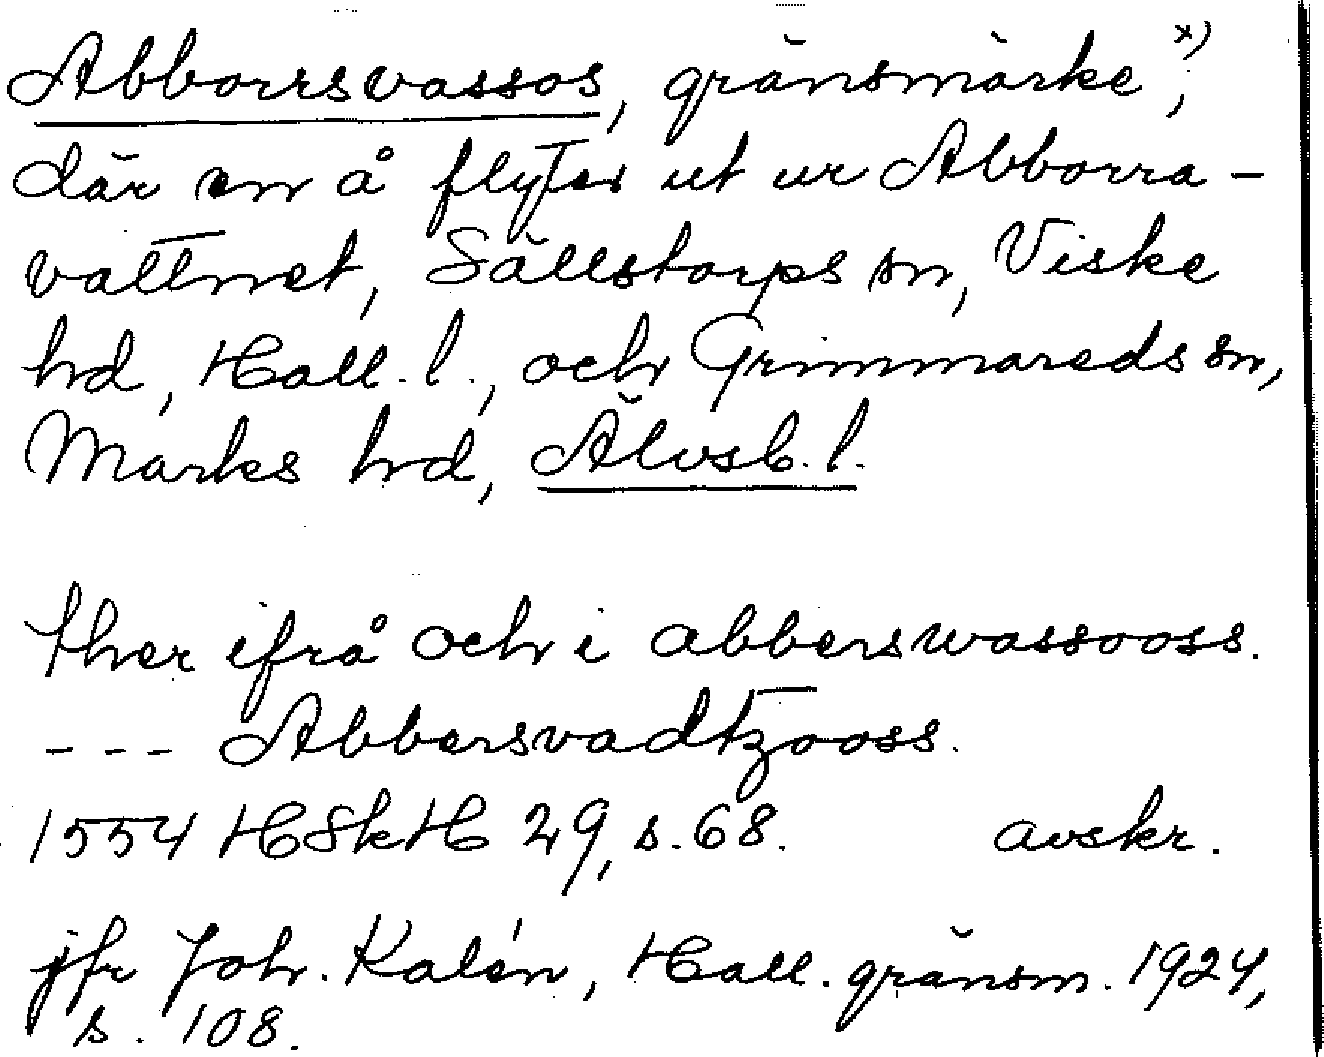 Abborrsvassos, gränsmärke x),
där en å flyter ut ur Abborra-
vattnet, Sällstorps sn, Viske
hd, Hall. l., och Grimmareds sn,
Marks hd, Älvsb. l.
ther ifrå och i abberswassooss.
--- Abbersvadtzooss.
1554 HSkH 29, s. 68. avskr.
jfr Joh. Kalén, Hall. gränsm. 1924,
s. 108.